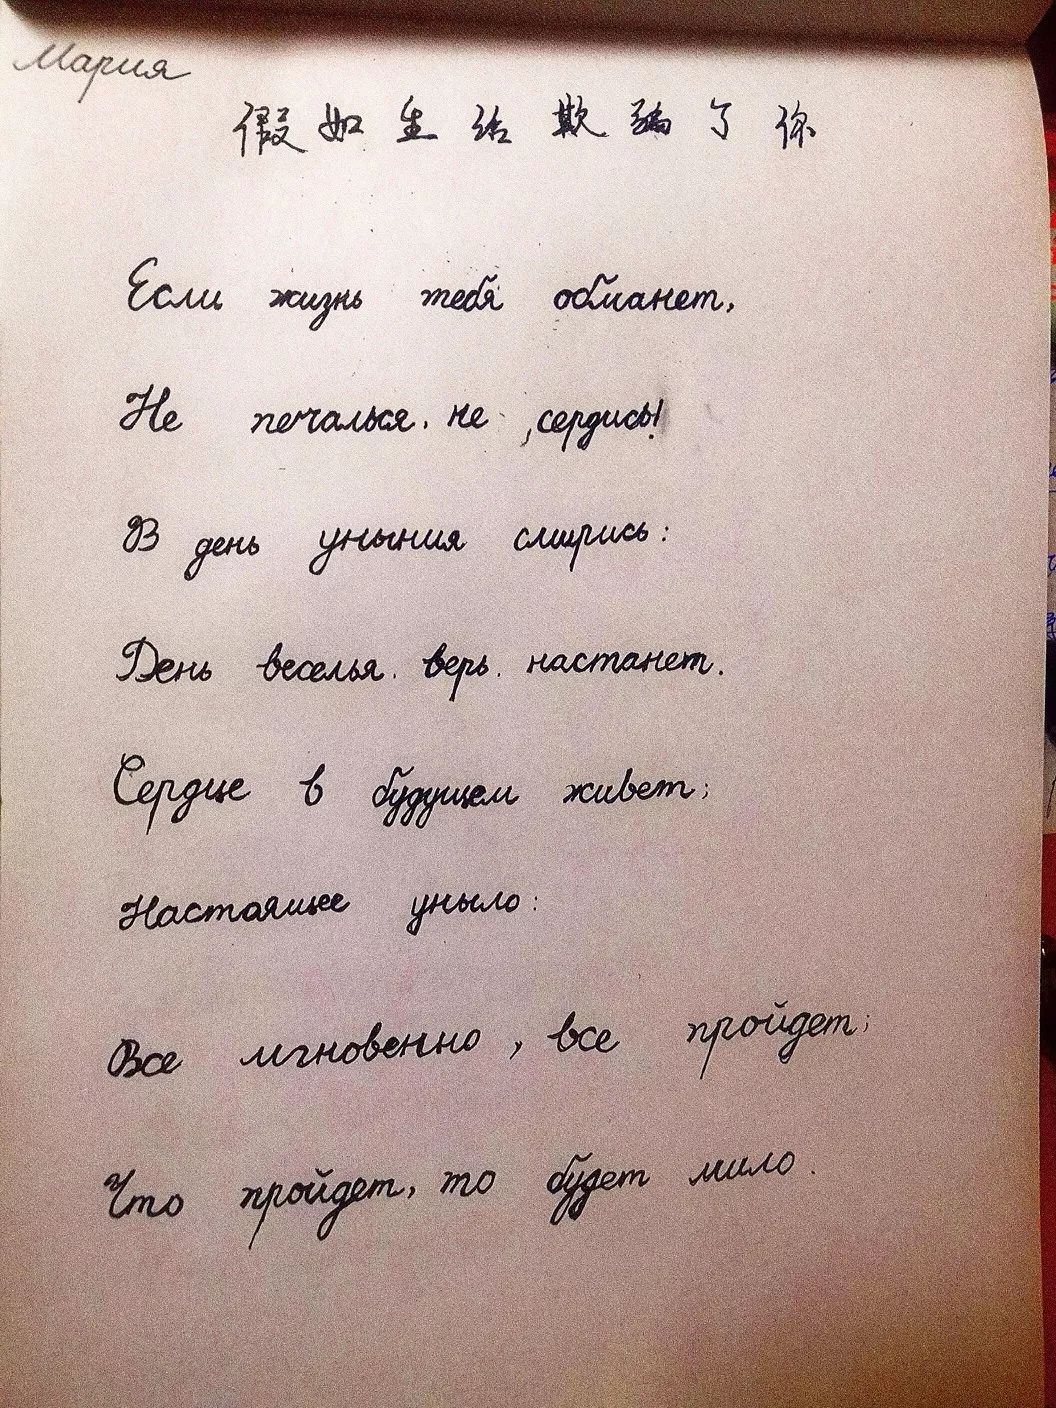 Мария
假如生活欺骗了你
Если жизнь тебя обманет,
Не печалься, не сердись!
В день уныния смирись:
День веселья, верь, настанет.
Сердце в будущем живет;
Настоящее уныло:
Все мгновенно, все пройдет;
Что пройдет, то будет мило.